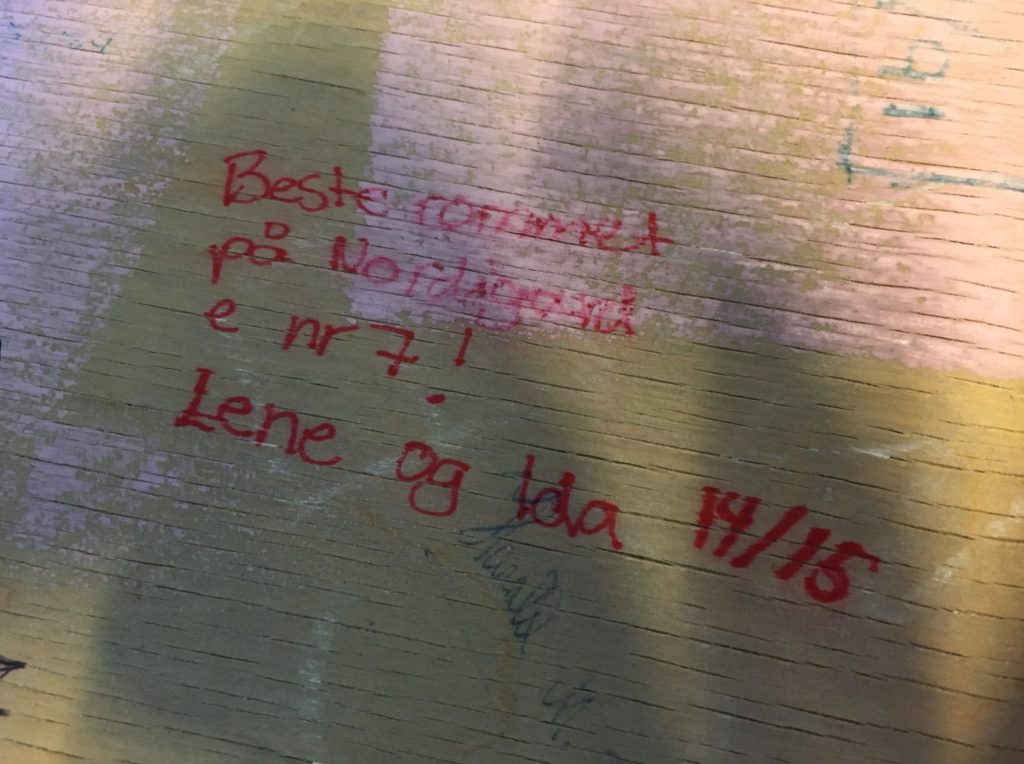 Beste rommet
på Nordigard
e nr 7!
Lene og Ida 14/15